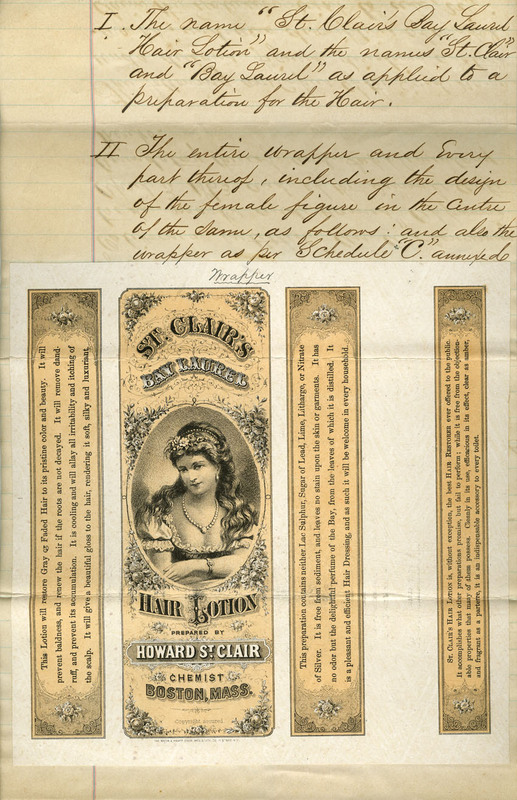 I. The name "St. Clair's Bay Laurel
Hair Lotion" and the names "St. Clair"
and "Bay Laurel" as applied to a
preparation for the Hair.
II The entire wrapper and every
part thereof, including the design
of the female figure in the centre
of the same, as follows: and also the
wrapper as per Schedule "C." annexed
Wrapper
This Lotion will restore Gray or Faded Hair to its pristine color and beauty. It will
prevent baldness, and renew the hair if the roots are not decayed. It will remove dand-
ruff, and prevent its accumulation. It is cooling and will allay all irritability and itching of
the scalp. It will give a beautiful gloss to the hair, rendering it soft, silky and luxuriant.
ST. CLAIR'S
BAY LAUREL
HAIR LOTION
PREPARED BY
HOWARD ST CLAIR
CHEMIST
BOSTON, MASS.
Copyright secured
This preparation contains neither Lac Sulphur, Sugar of Lead, Lime, Litharge, or Nitrate
of Silver. It is free from sediment, and leaves no stain upon the skin or garments. It has
no odor but the delightful perfume of the Bay, from the leaves of which it is distilled. It
is a pleasant and efficient Hair Dressing, and as such it will be welcome in every household.
ST. CLAIR'S HAIR LOTION is, without exception, the best HAIR RESTORER ever offered to the public.
It accomplishes what other preparations promise, but fail to perform; while it is free from the objection-
able properties that many of them possess. Cleanly in its use, efficacious in its effect, clear as amber,
and fragrant as a parterre, it is an indispensable accessory to every toilet.